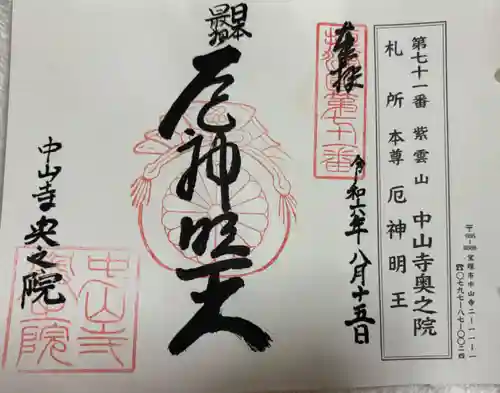 〒665-8588 宝塚市中山寺二-一一-一
☎〇七九七-八七-〇〇二四
第七十一番 紫雲山 中山寺奥之院
札所本尊 厄神明王
奉拝
令和六年八月十五日
日本
最初
厄神明王
中山寺奥之院
中山寺
奥之院